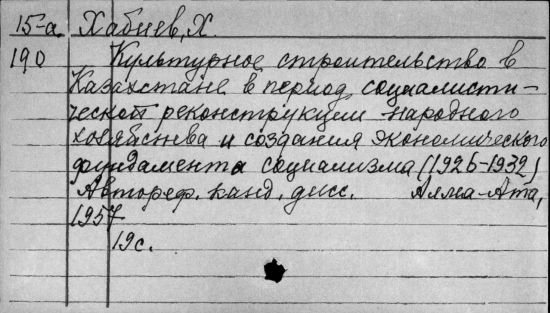 15-а Хабиев, Х.
190 Культурное строительство в
Казахстане в период социалисти-
ческой реконструкции народного
хозяйства и создания экономического
фундамента социализма (1926-1932)
Автореф. канд. дисс. Алма-Ата,
1957
19с.